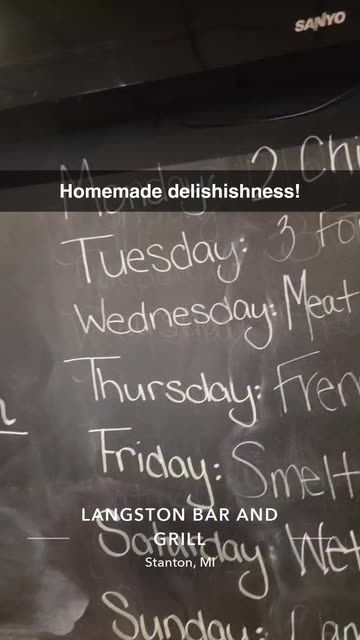 SANYO
Monday: 2 Chi
Homemade delishishness!
Tuesday: 3 To
Wednesday: Meat
Thursday: Fren
Friday: Smelt
LANGSTON BAR AND
GRILL
Saturday: Wet
Stanton, MI
Sunday: